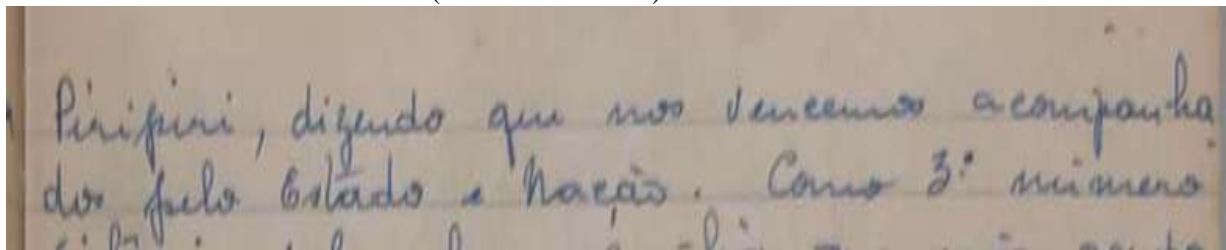 Piripiri, dizendo que nos vencemos acompanha
dos pelo Estado e Nação. Como 3º número